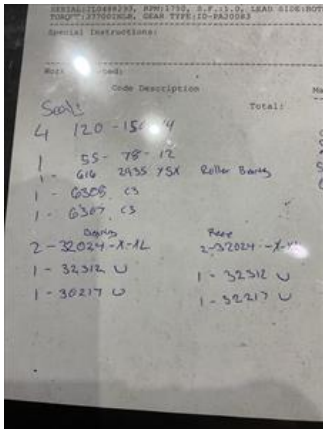 SERIAL:IL0488293, RPM:1750, S.F.:1.0, LEAD SIDE:BOT
TORQUE:377001NLB, GEAR TYPE:ID-PA20083
Special Instructions:
Code Description
Total:
Seal:
4 120-150-14
1 55-78-12
1 - 616 2935 YSX Roller Bearing
1 - 6308 C3
1 - 6307 C3
Bearing Race
2-32024-X-XL 2-32024-X-XL
1 - 32312 U 1 - 32312 U
1 - 30217 U 1 - 32217 U